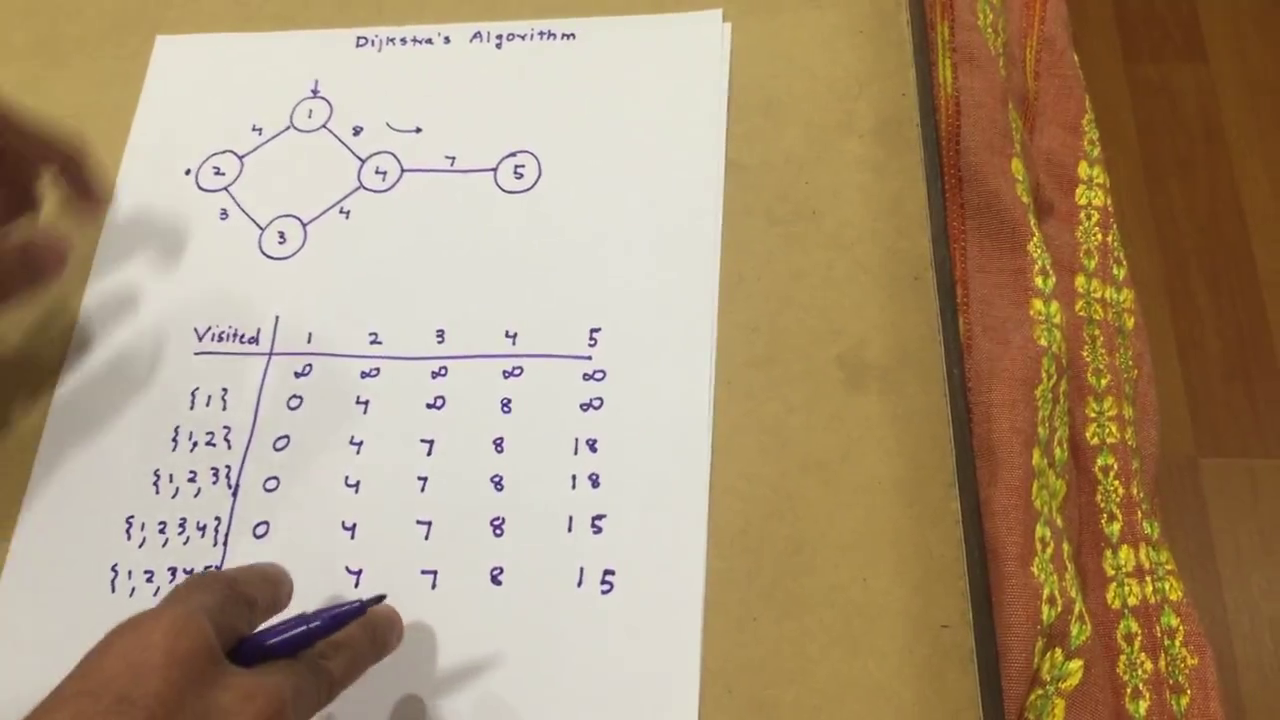 Dijkstra's Algorithm
1
4 8
2 4 7 5
3 4
3
Visited 1 2 3 4 5
∞ ∞ ∞ ∞ ∞
{1} 0 4 ∞ 8 ∞
{1,2} 0 4 7 8 18
{1,2,3} 0 4 7 8 18
{1,2,3,4} 0 4 7 8 15
{1,2,3 4 7 8 15